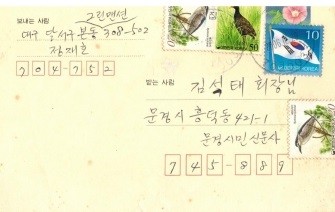 보내는 사람
그린맨션
대구 달서구 본동 308-502
704-752
받는 사람
김석태 회장님
문경시 흥덕동 421-1
문경시민신문사
745-889
50
10